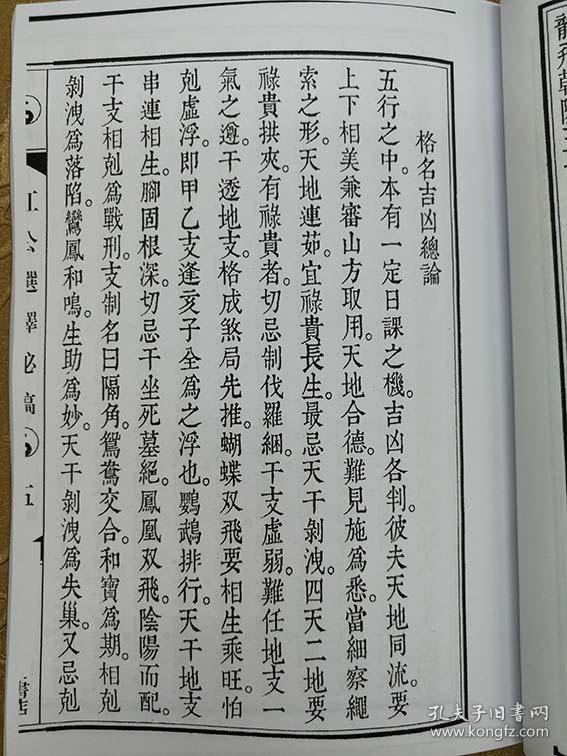 格名吉凶總論
五行之中。本有一定日課之機。吉凶各判。彼夫天地同流。要
上下相美兼審山方取用。天地合德。難見施為悉。當細察繩
索之形。天地連茹。宜祿貴長生。最忌天干剝洩。四天二地要
祿貴拱夾。有祿貴者。切忌制伐羅綑。干支虛弱。難任地支一
氣之遵。干透地支。格成煞局先推。蝴蝶双飛要相生乘旺。怕
剋虛浮。即甲乙支逢亥子全為之浮也。鸚鵡排行。天干地支
串連相生。腳固根深。切忌干坐死墓絕。鳳凰双飛。陰陽而配。
干支相剋為戰刑。支制名曰隔角。鴛鴦交合。和寶為期。相剋
剝洩為落陷。鸞鳳和鳴。生助為妙。天干剝洩為失巢。又忌剋
選擇秘稿
五
書店
孔夫子旧书网
www.kongfz.com